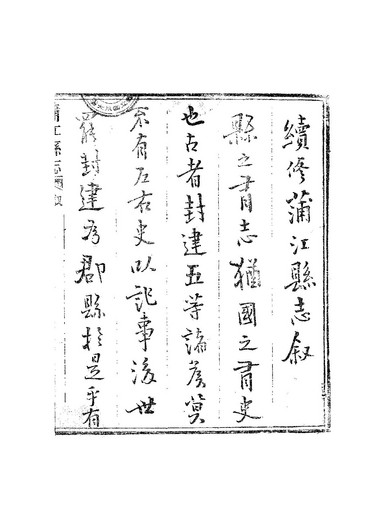 續修蒲江縣志叙
縣之有志猶國之有史
也古者封建五等諸侯莫
不有左右史以記事後世
罷封建為郡縣於是乎有
蒲江縣志